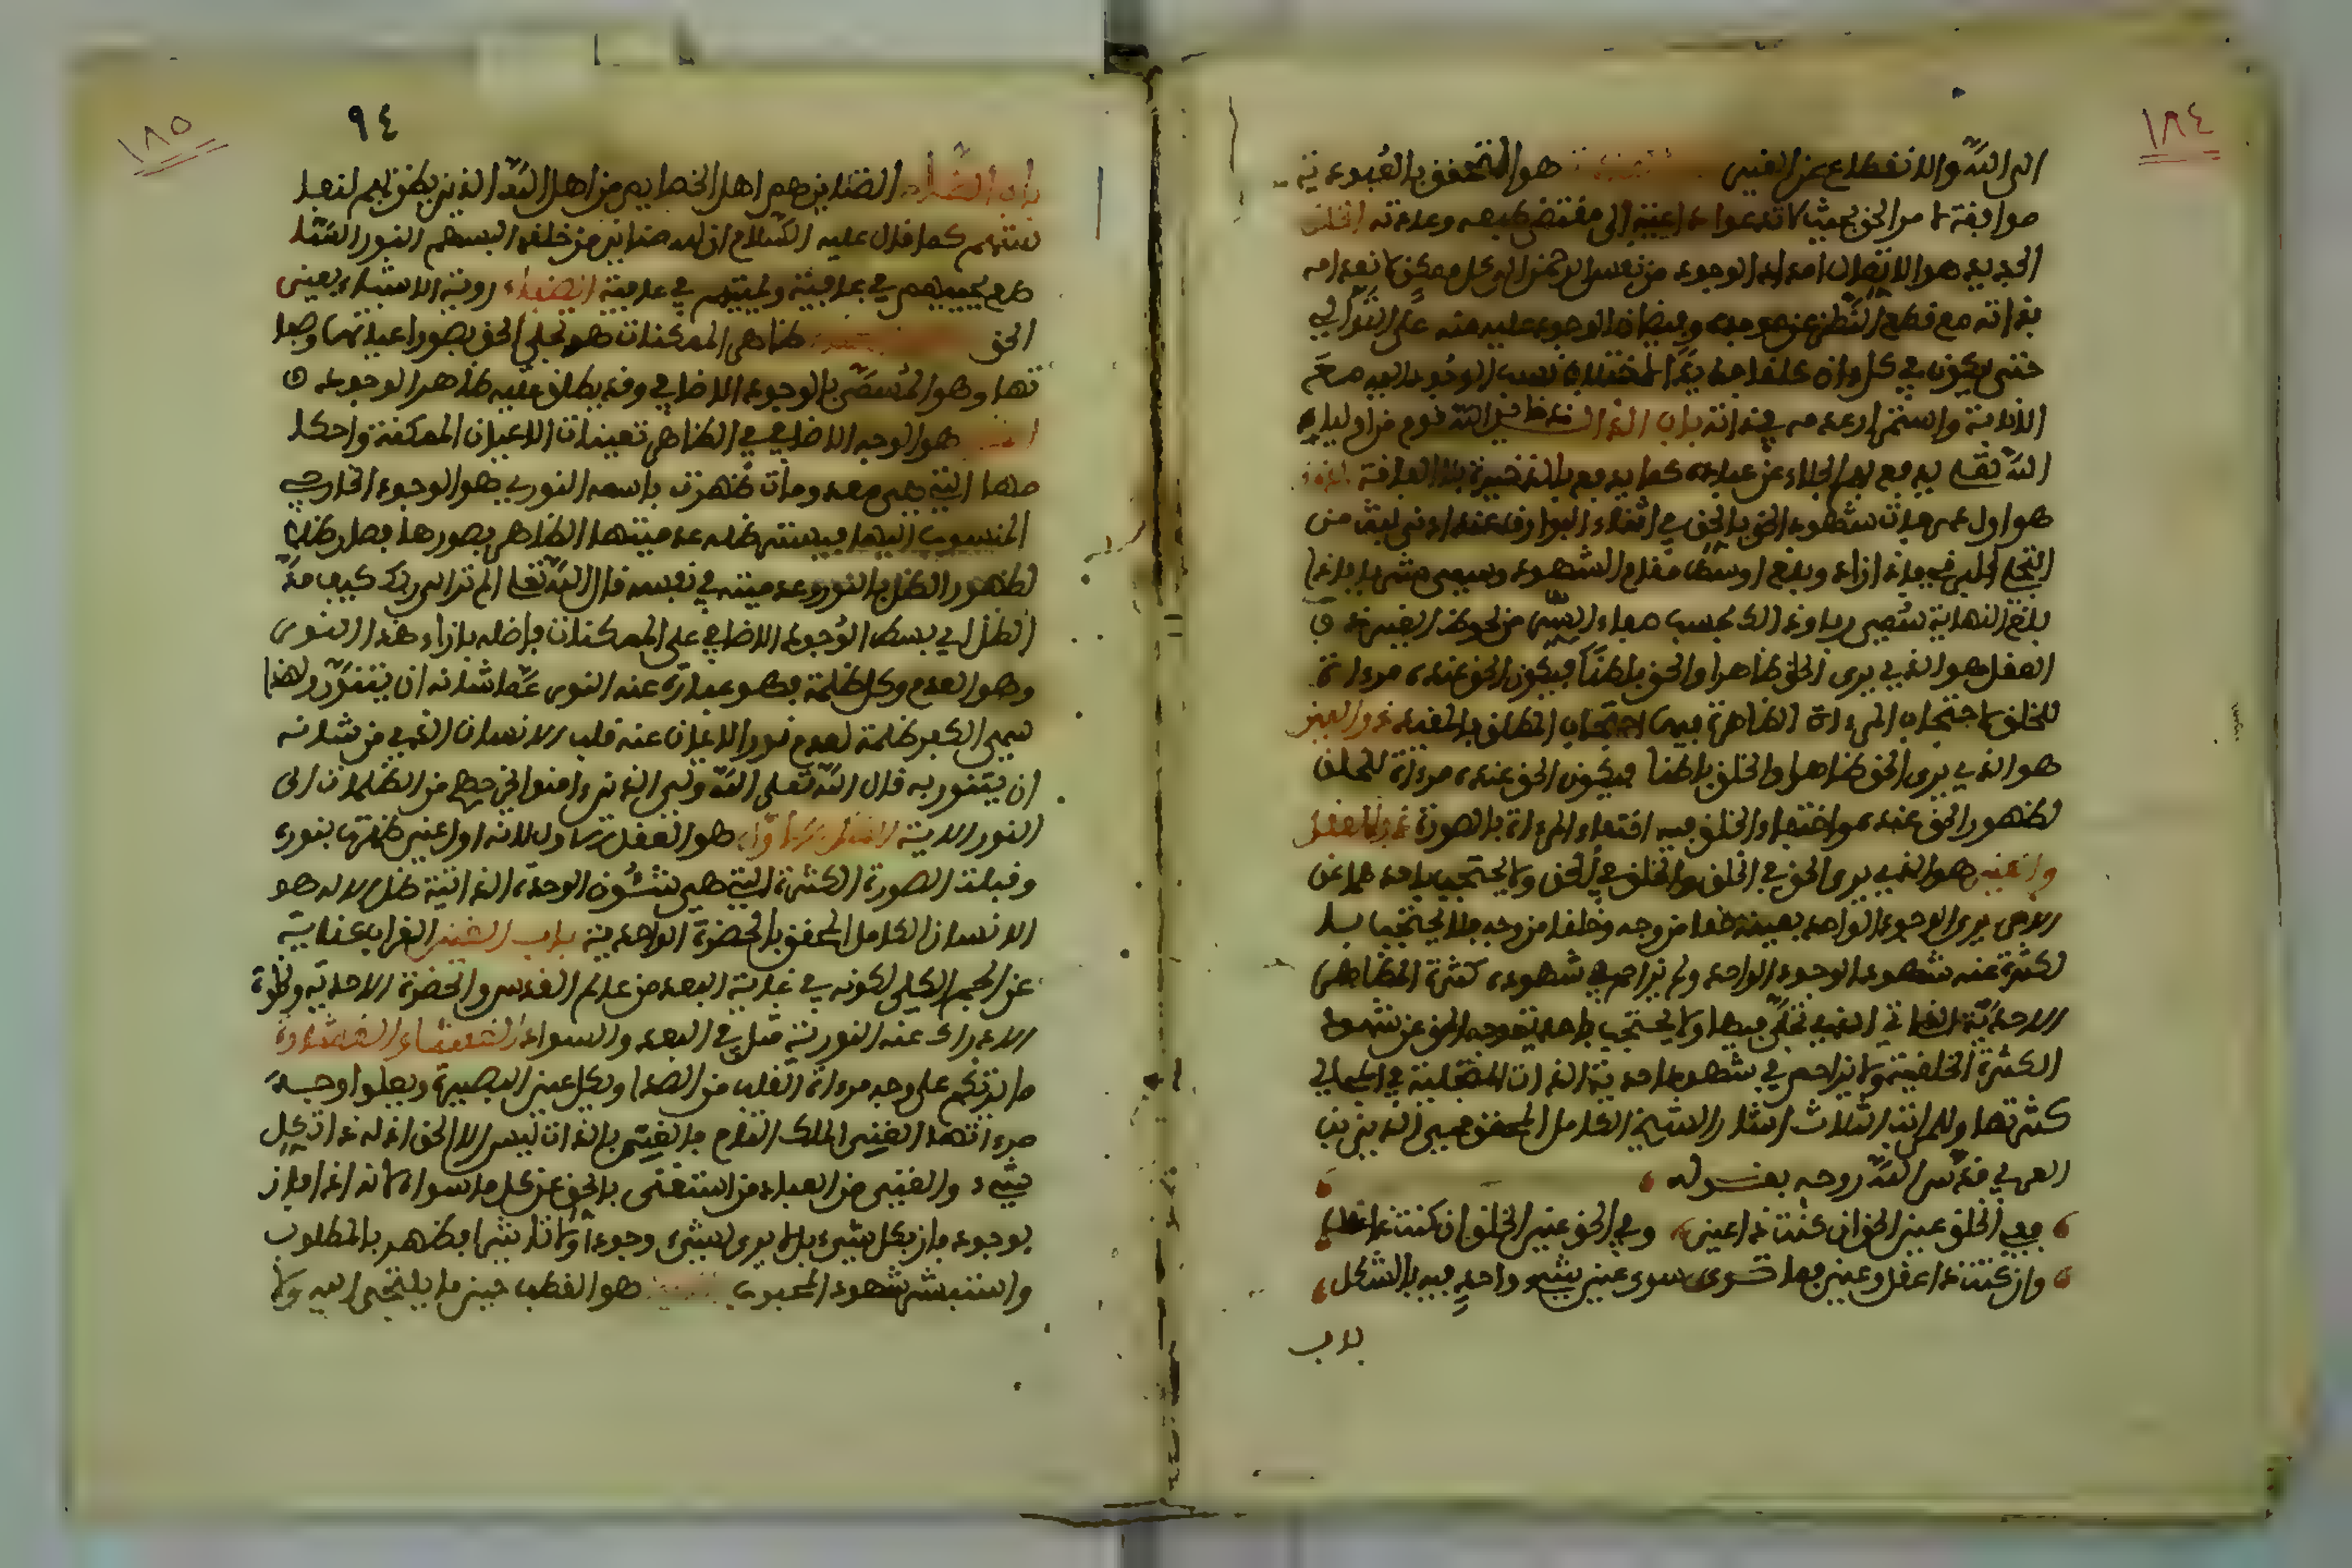 ١٨٤
الى الله والانقطاع عن الغير هو المتحقق بالعبودية
موافقة لامر الحق بحيث لا تدعوه داعية الى مقتضى طبعه وعادته الخلق
الجديد هو الاتصال امداد الوجود من نفس الرحمن الى كل ممكن لانعدامه
بذاته مع قطع النظر عن موجده وفيضان الوجود عليه منه على التوالي
حتى يكون في كل وان خلقا جديدا لاختلاف نسب الوجود اليه مع
الانات واستمرار عدمه في ذاته باب الذال ذخاير الله قوم من اوليايه
الله تعلى يدفع بهم البلاء عن عباده كما يدفع بالذخيرة بلاء الفاقة الذوق
هو اول درجات شهود الحق بالحق في اثناء البوارق عند ادنى لبث من
التجلي البرقي فاذا زاد وبلغ اوسط مقام الشهود وسمي شربا فاذا
بلغ النهاية سمي ريا وذلك بحسب صفاء السر من لحوظ الغير ذو
العقل هو الذي يرى الخلق ظاهرا والحق باطنا فيكون الحق عنده مرءاة
للخلق لاحتجاب المرءاة الظاهرة فيها احتجاب المطلق بالمقيد ذو العين
هو الذي يرى الحق ظاهرا والخلق باطنا فيكون الحق عنده مرءاة للخلق
لظهور الحق عنده واختفاء الخلق فيه اختفاء المرءاة بالصورة ذو العقل
والعين هو الذي يرى الحق في الخلق والخلق في الحق ولا يحتجب باحدهما عن
الاخر يرى الوجود الواحد بعينه حقا من وجه وخلقا من وجه فلا يحتجب بال
لكثرة عنه شهود الوجود الواحد ولم تزاحم في شهوده كثرة المظاهر
الاحدية الذات التي تجلى فيها ولا يحتجب باحدية وجه الحق عن شهود
الكثرة الخلقية ولا تزاحم في شهود احدية الذات المتجلية في المجالي
كثرتها وللمراتب الثلاث اشار الشيخ الكامل المحقق محيي الدين بن
العربي قدس الله روحه بقوله
ففي الخلق عين الحق ان كنت ذا عين وفي الحق عين الخلق ان كنت ذا عقل
وان كنت ذا عقل وعين فما ترى سوى عين شيء واحد فيه بالشكل
باب
١٨٥
٩٤
باب الضاد الضناين هم اهل الخصايص من اهل الله الذين يضن بهم لنفا
ستهم كما قال عليه السلام ان لله ضناين من خلقه البسهم النور السا
طع يحييهم في عافية ويميتهم في عافية الضياء روية الاشياء بعين
الحق ظاهر الممكنات هو تجلي الحق بصور اعيانها وصفا
تها وهو المسمى بالوجود الاضافي وقد يطلق عليه ظاهر الوجود
هو الوجود الاضافي الظاهر تعينات الاعيان الممكنة واحكا
مها التي هي معدومات ظهرت باسمه النور هو الوجود الخارجي
المنسوب اليها فيستر ظلمة عدميتها الظاهر بصورها فصار ظلا
لظهور الظل بالنور وعدميته في نفسه قال الله تعلى الم تر الى ربك كيف مد
الظل اي بسط الوجود الاضافي على الممكنات فالظلمة بازاء هذا النور
وهو العدم وكل ظلمة فهو عبارة عنه النور عما شانه ان يتنور ولهذا
سمي الكفر ظلمة لعدم نور الايمان عنه قلب الانسان الذي من شانه
ان يتنور به قال الله تعلى الله ولي الذين ءامنوا يخرجهم من الظلمات الى
النور الاية الظل الاول هو العقل الاول لانه اول عين ظهرت بنوره
وقبلت الصورة الكثرة التي هي شئون الوحدة الذاتية ظل الاله هو
الانسان الكامل المحقق بالحضرة الواحدية باب الغين الغراب كناية
عن الجسم الكلي لكونه في غاية البعد من عالم القدس والحضرة الاحدية ولخلوه
الادراك عنه النورية مثل في البعد والسواد الغشاء الغشاوة
ما يتركم على وجه مرءاة القلب من الصدا ويكل عين البصيرة ويعلو وجه
مرءاتها الغني الملك التام فالغني بالذات ليس الا الحق اذ له ذات كل
شيء والغني من العباد من استغنى بالحق عن كل ما سواه لانه اذا فاز
بوجوده فاز بكل شيء بل لا يرى لشيء وجودا ولا تاثيرا فظهر بالمطلوب
واستبشر شهود المحبوب هو القطب حين ما يلتجى اليه ولا